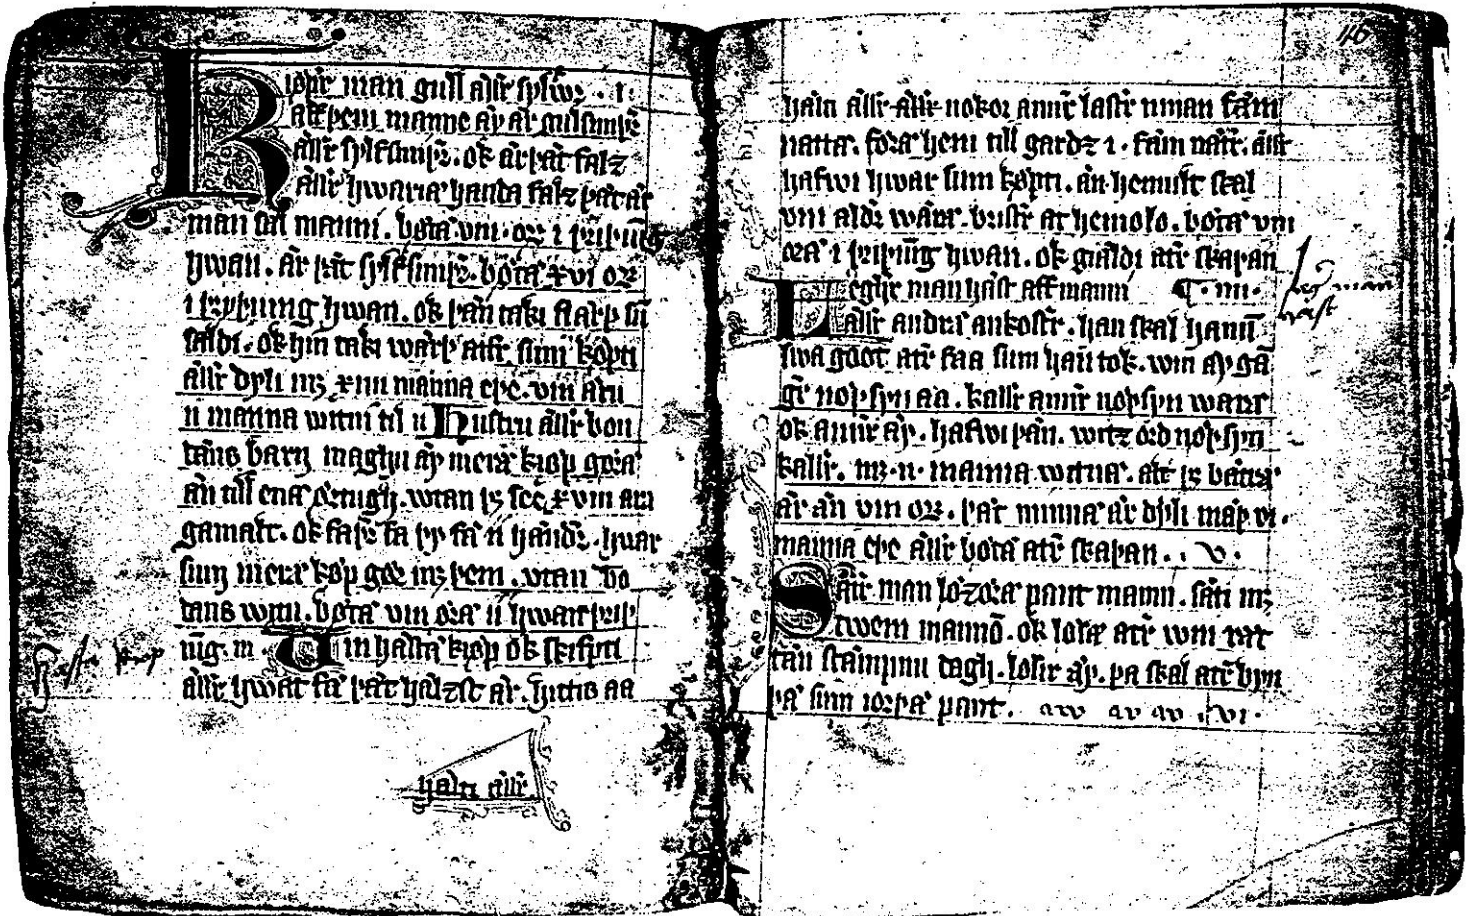 Kiöpir man gull ællir sylwr . i.
aff þem manne æy ær gulsmiþr
ællir sylfsmiþr . ok ær þæt falz
ællir hwaria handa falz þæt ær
man sæl manni . böta VIII . or i þriþiung
hwan . ær þæt sylfsmiþr . böta XVI or
i þryþiung hwan . ok þæn taki flærþ sin
saldi . ok hin taki wærþ atir sum köpti
ællir dyli mz XIIII manna eþe . VIII aru
II manna witni til II Hustru ællir bon
dans barn maghu æy meræ kiöp göra
æn till ena örtugh . utan þz se XVIII ara
gamalt . ok fæþr fa þy fæ ii hændr . huar
sum meræ köp gör mz þem . utan bo
tans witu . böta VIII öra ii hwart þriþ
iung . III . Um hæsta kiöp ok skifpti
ællir hwat fæ þæt hælzst ær . hittis aa
hælti ællir
Hæsta köp
116
hælti ællir ællir nokor annur lastir innan fæm
natta . föra hem till gardz i . fæm nætr . ællir
hafwi hwar sum köpti . æn hemult skal
um aldr wæra . bristr at hemolo . böta VIII
öra i þriþiung hwan . ok gialdi atr skaþan
Leghir man hæst aff manni ¶ . IIII .
ællir andra ankostir . han skal hanum
swa goot atr faa sum han tok . um æy gan
gr noþsyn aa . kallir annr noþsyn wara
ok annr æy . hafwi þæn . witz ord noþsyn
kallir . mz . II . manna witna . at þz bætra
ær æn VIII or . þær minna ær dyli mæþ VI .
manna eþe ællir böta atr skaþan . . V .
Sætir man lözöra pant manni . sæti mz
twem mannom . ok lösæ atr um ræt
tan stæmpnu dagh . lösir æy . þa skal atr byu
þa sum iorþa pant . VI .
Legi man
hæst